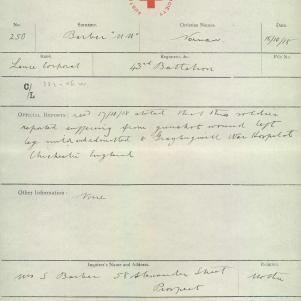 No. Surname. Christian Names. Date.
250 Barber "M.M" Norman 15/10/18
Rank. Regiment, &c. File No.
Lance Corporal 43rd Battalion
C/L
OFFICIAL REPORTS: recd 17/10/18 stated that this soldier
reported suffering from gunshot wound left
leg mild admitted to Graylingwell War Hospital
Chichester England
Other Information: None
Inquirer's Name and Address. Relation.
Mrs S Barber 58 Alexander Street Mother
Prospect